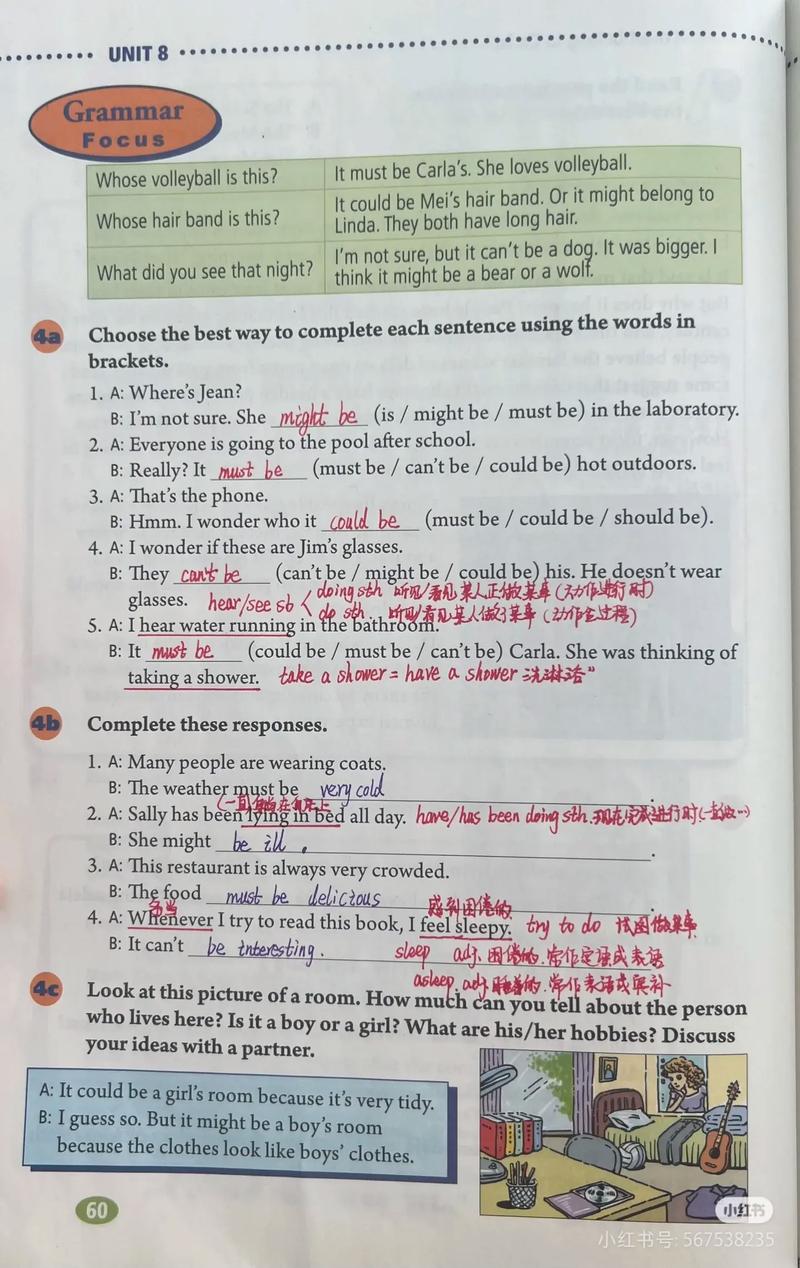 UNIT 8
Grammar
Focus
Whose volleyball is this? It must be Carla's. She loves volleyball.
Whose hair band is this? It could be Mei's hair band. Or it might belong to
Linda. They both have long hair.
What did you see that night? I'm not sure, but it can't be a dog. It was bigger. I
think it might be a bear or a wolf.
4a Choose the best way to complete each sentence using the words in
brackets.
1. A: Where's Jean?
B: I'm not sure. She might be (is / might be / must be) in the laboratory.
2. A: Everyone is going to the pool after school.
B: Really? It must be (must be / can't be / could be) hot outdoors.
3. A: That's the phone.
B: Hmm. I wonder who it could be (must be / could be / should be).
4. A: I wonder if these are Jim's glasses.
B: They can't be (can't be / might be / could be) his. He doesn't wear
glasses. hear/see sb
doing sth 听见/看见某人正做某事(动作进行时)
do sth. 听见/看见某人做了某事(动作全过程)
5. A: I hear water running in the bathroom.
B: It must be (could be / must be / can't be) Carla. She was thinking of
taking a shower. take a shower = have a shower 洗淋浴"
4b Complete these responses.
1. A: Many people are wearing coats.
B: The weather must be very cold.
2. A: Sally has been lying in bed all day. have/has been doing sth. 现在完成进行时(一直做…)
B: She might be ill.
3. A: This restaurant is always very crowded.
B: The food must be delicious
每当 感到困倦的
4. A: Whenever I try to read this book, I feel sleepy. try to do 试图做某事
B: It can't be interesting. sleep adj. 困倦的.常作定语或表语
asleep. adj. 睡着的.常作表语或宾补
4c Look at this picture of a room. How much can you tell about the person
who lives here? Is it a boy or a girl? What are his/her hobbies? Discuss
your ideas with a partner.
A: It could be a girl's room because it's very tidy.
B: I guess so. But it might be a boy's room
because the clothes look like boys' clothes.
60
小红书
小红书号: 567538235